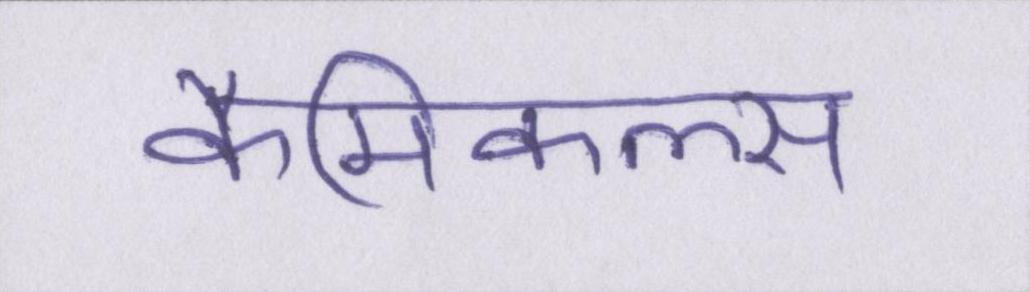 कैमिकल्स